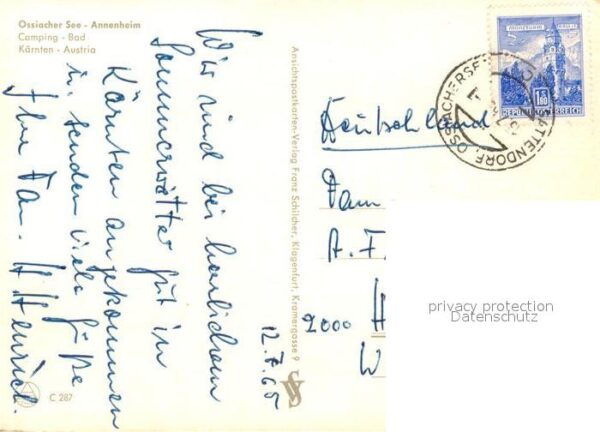 Ossiacher See - Annenheim
Camping - Bad
Kärnten - Austria
Wir sind bei herrlichem
Sommerwetter gut in
Kärnten angekommen
u. senden viele Grüße
Ihre Fam. H. Heinrich.
12.7.65
C 287
Ansichtspostkarten-Verlag Franz Schilcher, Klagenfurt, Kramergasse 9
REPUBLIK ÖSTERREICH
1.80
OSSIACHERSEE
Deutschland
Fam
A. F
2000 H
W
privacy protection
Datenschutz